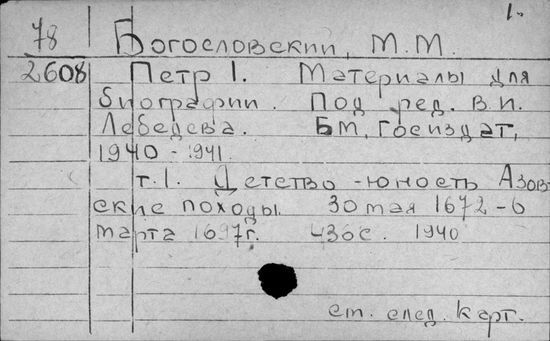 1.
78 Богословский, М.М.
2608 Петр I. Материалы для
биографии. Под ред. В.И.
Лебедева. БМ, Госиздат,
1940-1941.
т.1. Детство-юность Азов
ские походы. 30 мая 1672-6
марта 1697г. 436с. 1940
см. след. карт.